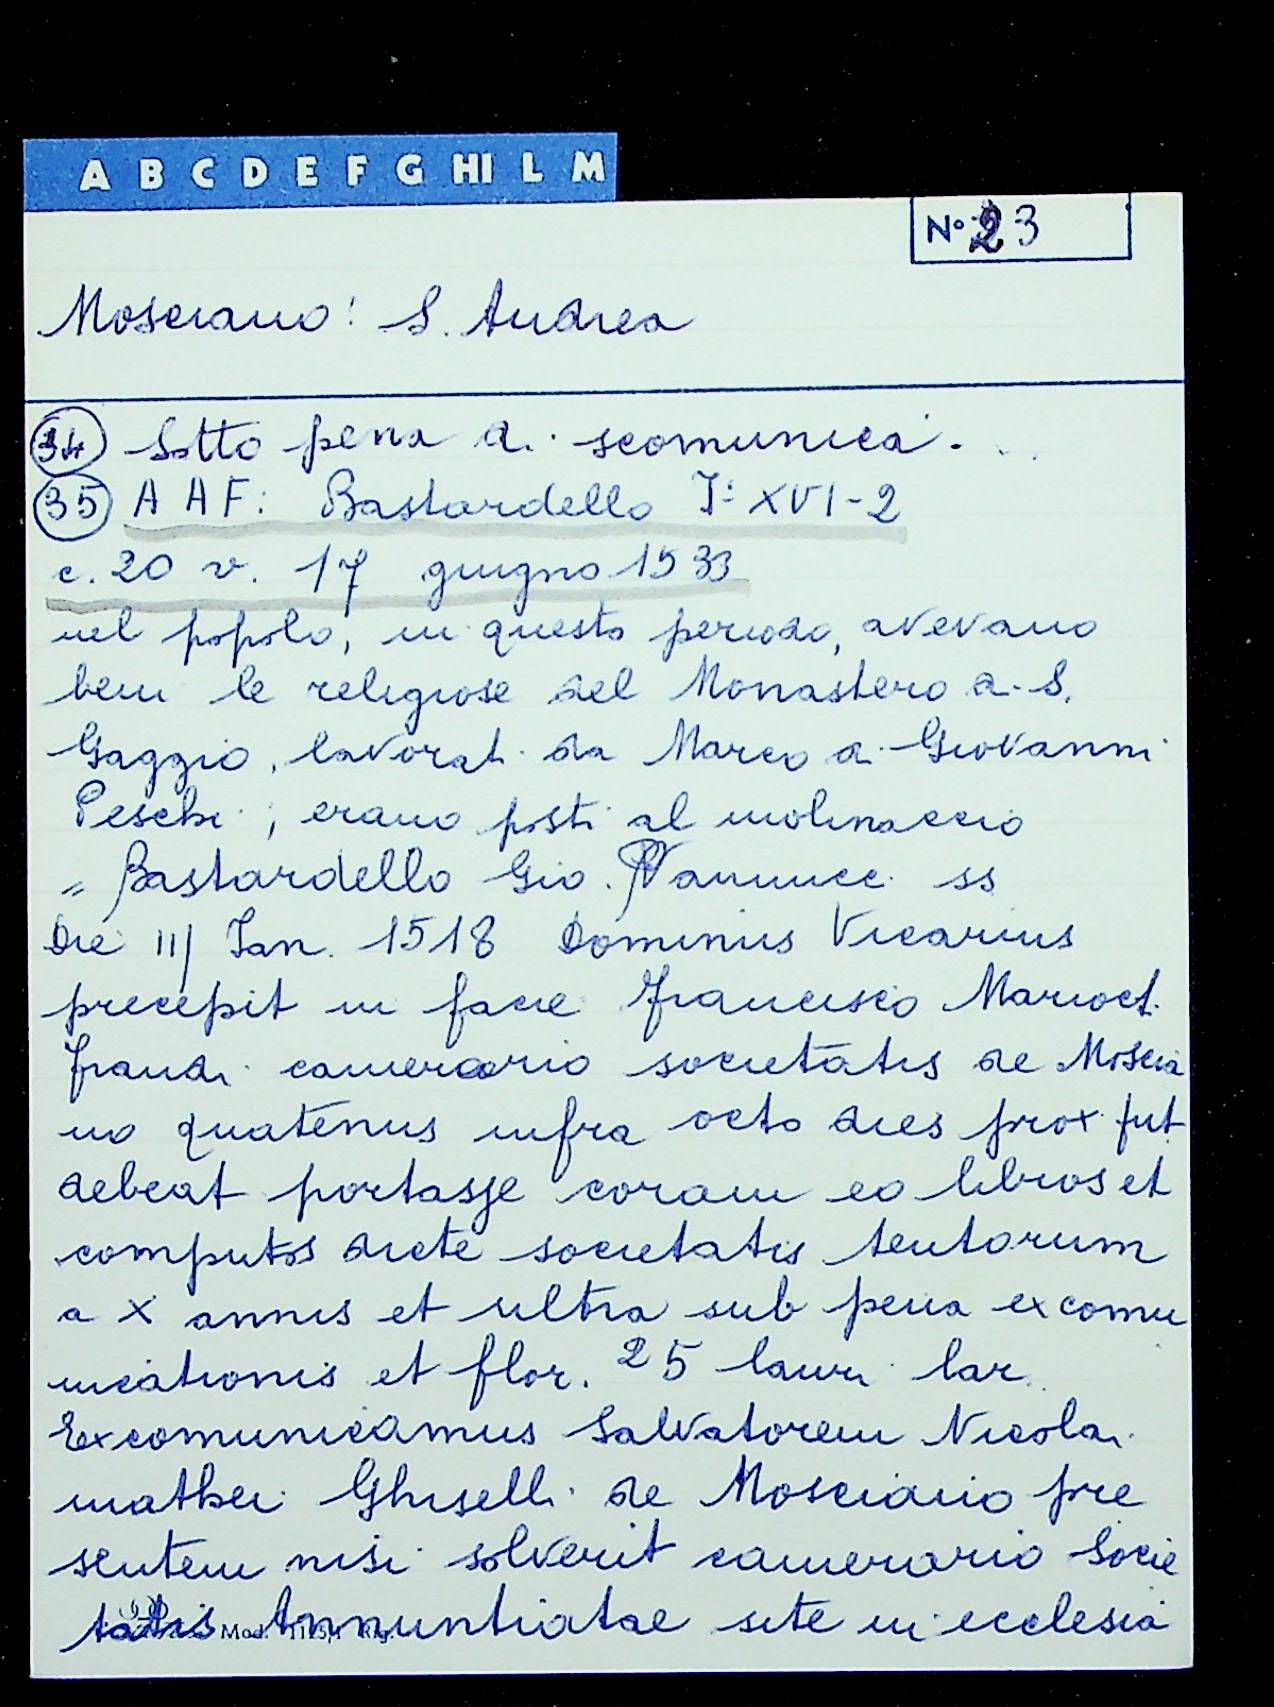 A B C D E F G HI L M
N° 23
Mosciano: S. Andrea
34 Sotto pena di scomunica.
35 A A F: Bastardello I: XVI-2
c. 20 v. 17 giugno 1533
nel popolo, in questo periodo, avevano
beni le religiose del Monastero di S.
Gaggio, lavorati da Marco di Giovanni
Peschi; erano posti al molinaccio
" Bastardello Gio. Vannucc. ss
Die III Jan. 1518 Dominus Vicarius
precepit in facie Francisco Marioct.
camerario societatis de Moscia
no quatenus infra octo dies prox fut
debeat portasse coram eo libros et
computos dicte societatis tentorum
a X annis et ultra sub pena excomu
nicationis et flor. 25 lar.
Excomunicamus Salvatorem Nicolai
mathei Ghiselli de Mosciano pre
sentem nisi solverit camerario Socie
tatis Annuntiatae site in ecclesia
Mod.